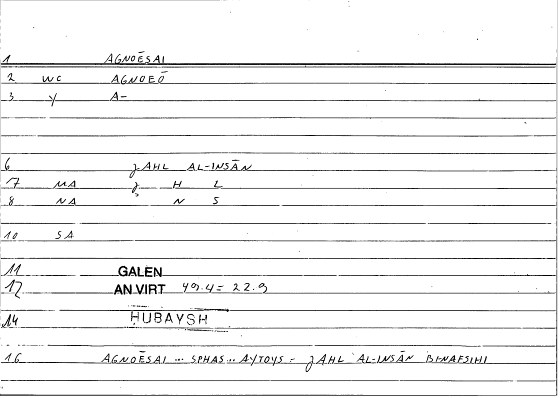 1 AGNOĒSAI
2 WC AGNOEŌ
3 Y A-
6 ǧAHL AL-INSĀN
7 MA ǧ H L
8 NA ʾ N S
10 SA
11 GALEN
12 AN VIRT 49.4 = 22.9
14 ḤUBAYSH
16 AGNOĒSAI ... SPHAS .. AYTOYS = ǧAHL AL-INSĀN BINAFSIHI